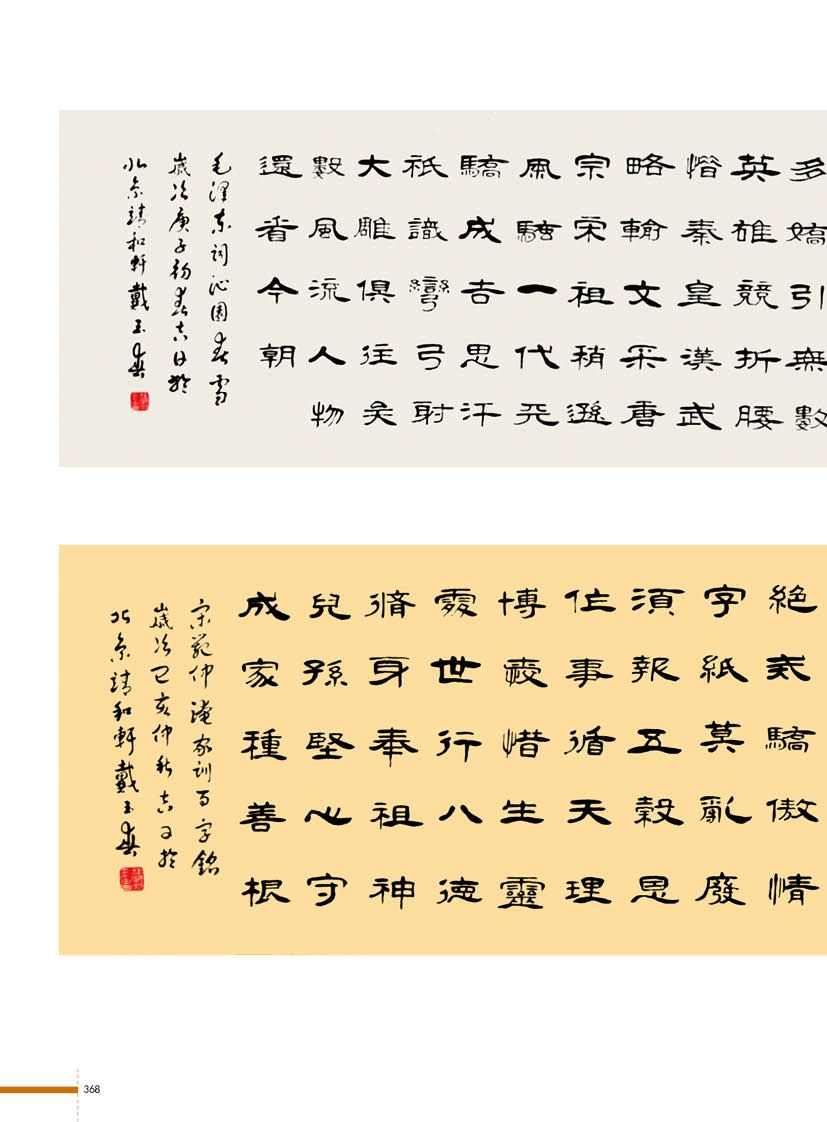 多嬌引無數
英雄競折腰
惜秦皇漢武
略輸文采唐
宗宋祖稍遜
風騷一代天
驕成吉思汗
祇識彎弓射
大雕俱往矣
數風流人物
還看今朝
毛澤東詞沁園春雪
歲次庚子初春吉日於
北京靖和軒戴玉
絕戒驕傲情
字紙莫亂廢
須報五穀恩
作事循天理
博愛惜生靈
處世行八德
脩身奉祖神
兒孫堅心守
成家種善根
宋范仲淹家訓百字銘
歲次己亥仲秋吉日於
北京靖和軒戴玉
368